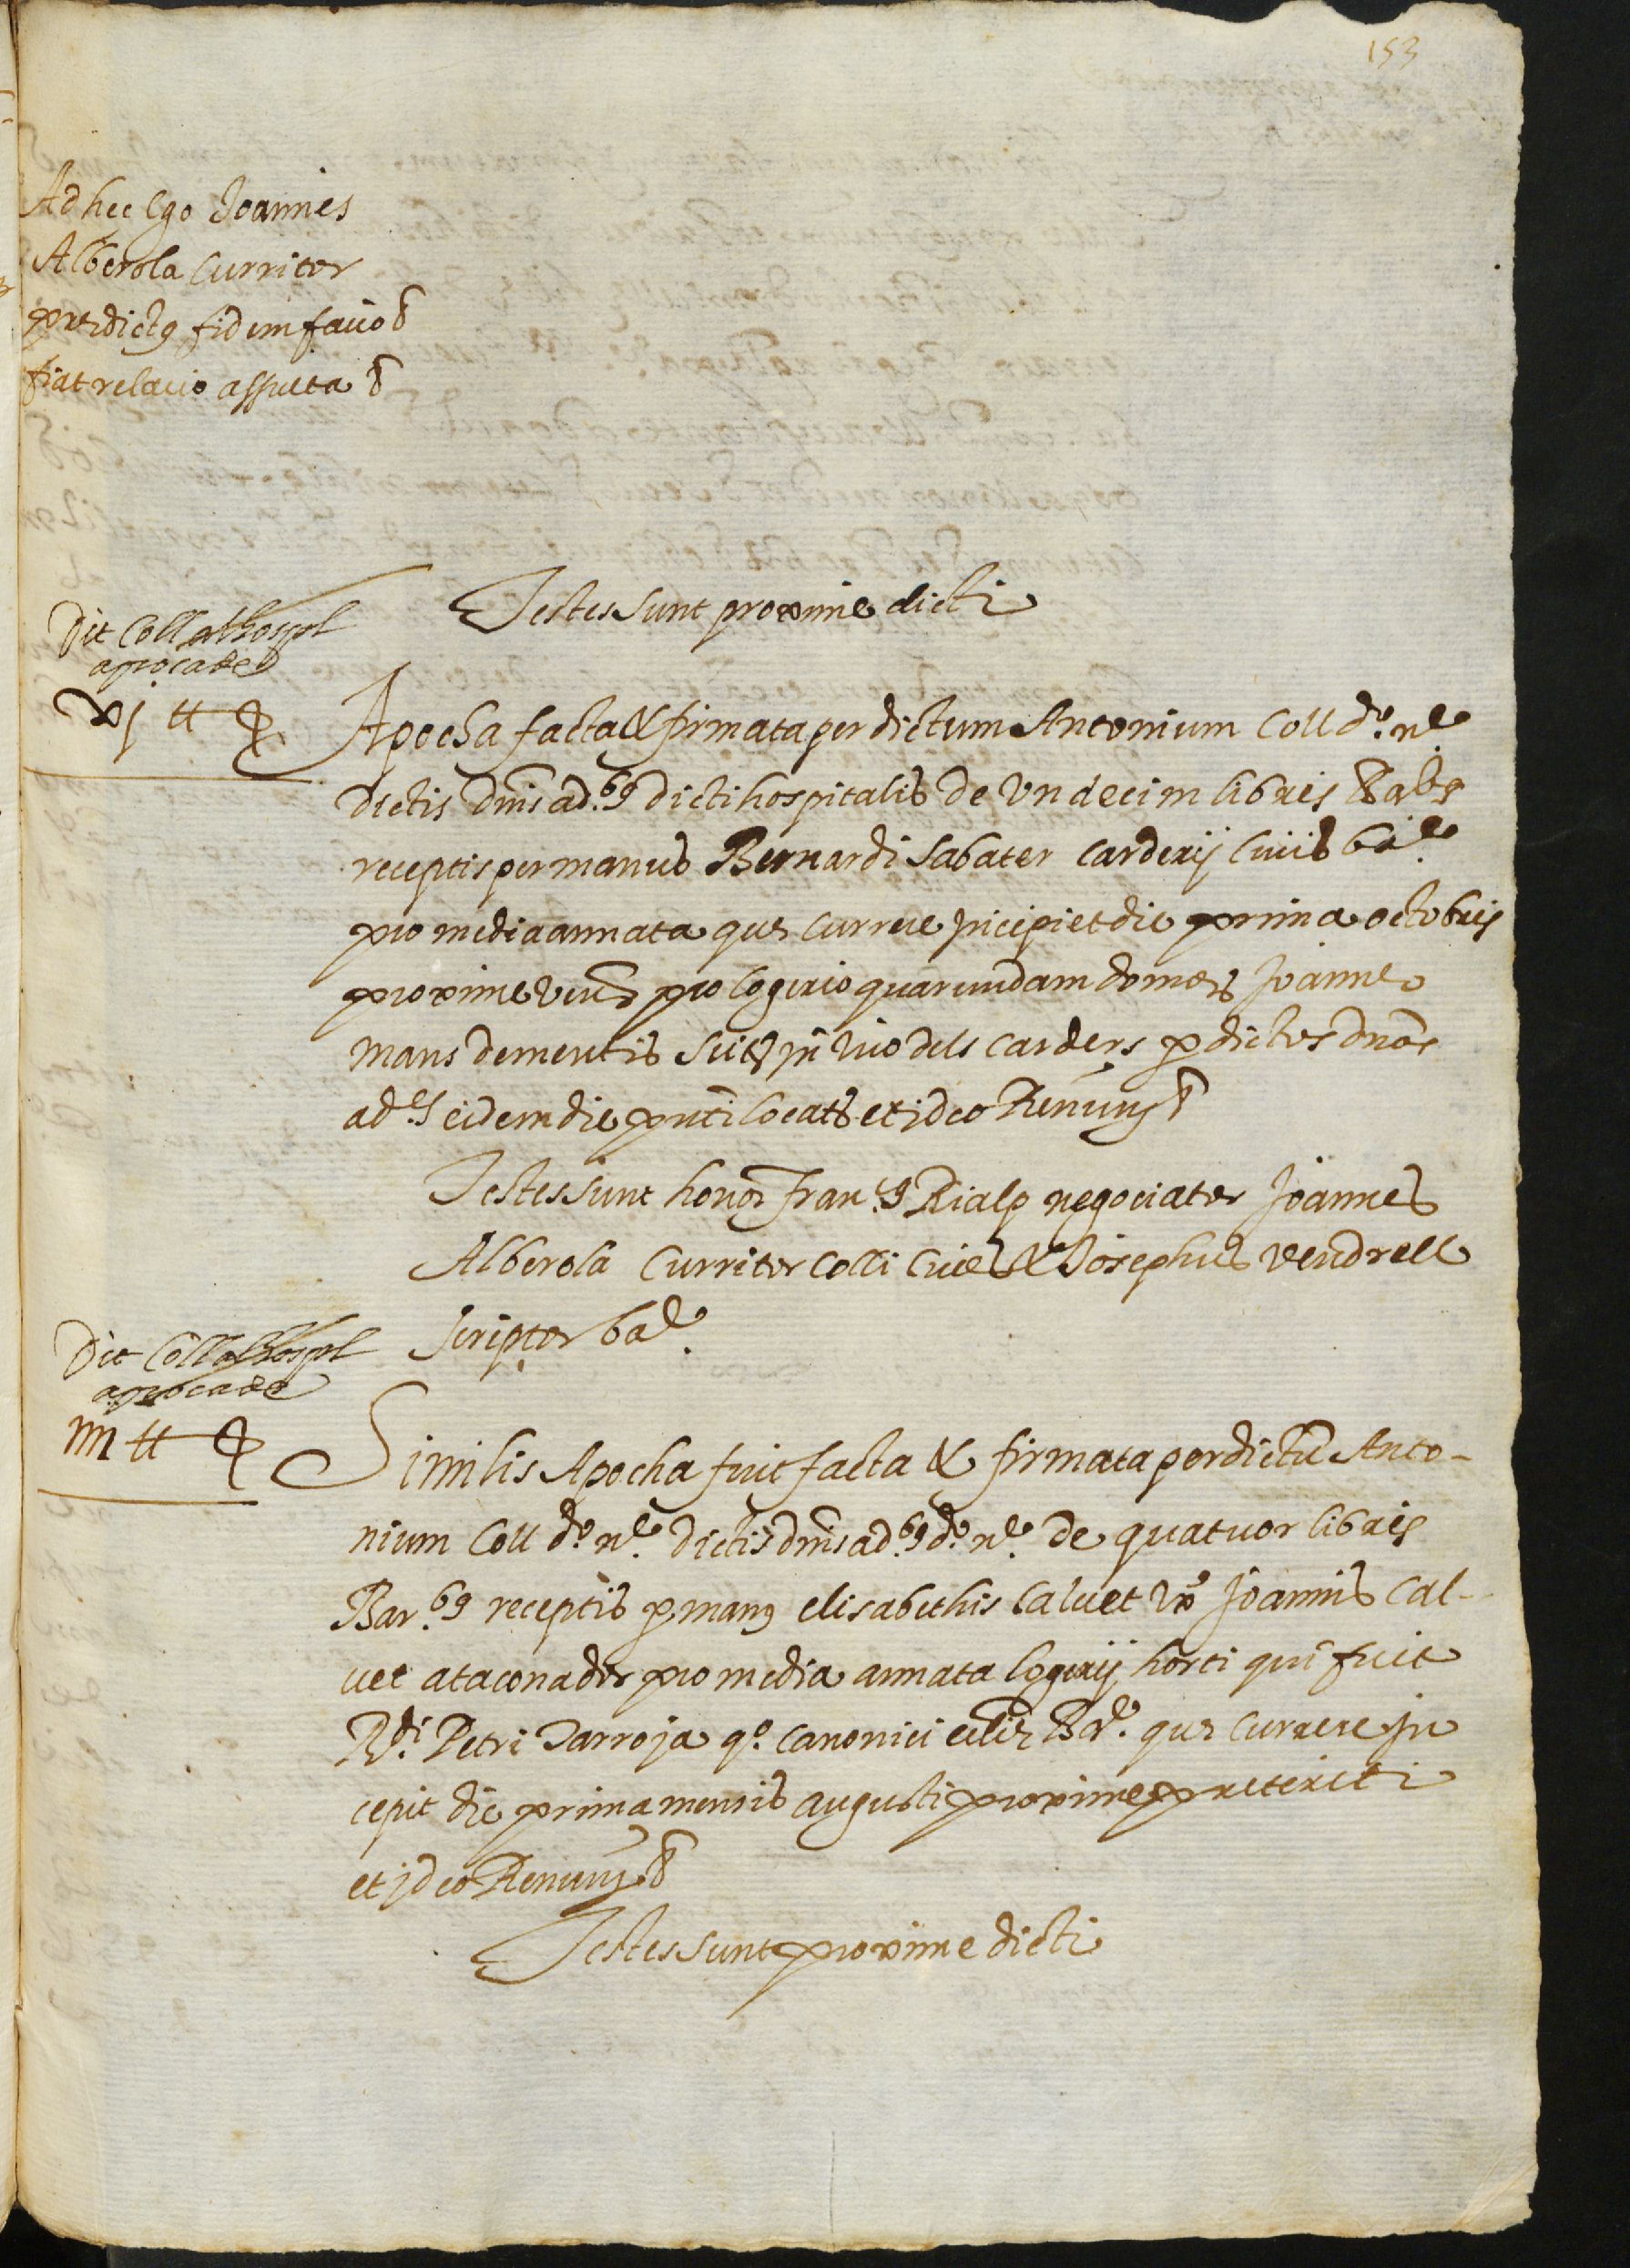 153
Ad hec Ego Joannes
Alberola Curritor
predictꝯ fidem facio &
fiat relacio assueta &
Testes sunt proxime dicti
Dit Coll al hospl
apoca de
xj ₶
Apocha facta & firmata per dictum Antonium Coll d.º n.e
dictis dnis ad.bꝯ dicti hospitalis de Undecim libris Bar.bꝯ
receptis per manus Bernardi Sabater carderij Civis bar.e
pro media annata que currere incipiet die prima octobris
proxime vent. pro logerio quarundam domorum Joanne
Mans dementis sui in vico dels carders p dictos dnos
ad.es eidem die pnti locatis et ideo Renuny &
Testes sunt honor. Fran.cꝯ Rialp negociator Joannes
Alberola Curritor Colli Cives & Josephus Vendrell
scriptor bar.e
Dit Coll al hospl
apoca de
iiii ₶
Similis Apocha fuit facta & firmata per dictū Anto-
nium Coll d.º n.e dictis dnis ad.bꝯ d.º n.e de quatuor libris
Bar.bꝯ receptis p manꝯ elisabethis Calvet vx.º Joannis Cal-
vet ataconador pro media annata logerij horti qui fuit
R.di Petri Tarroja q.º canonici ecclie Bar.e que currere in
cepit die prima mensis augusti proxime preteriti
et ideo Renuny &
Testes sunt proxime dicti